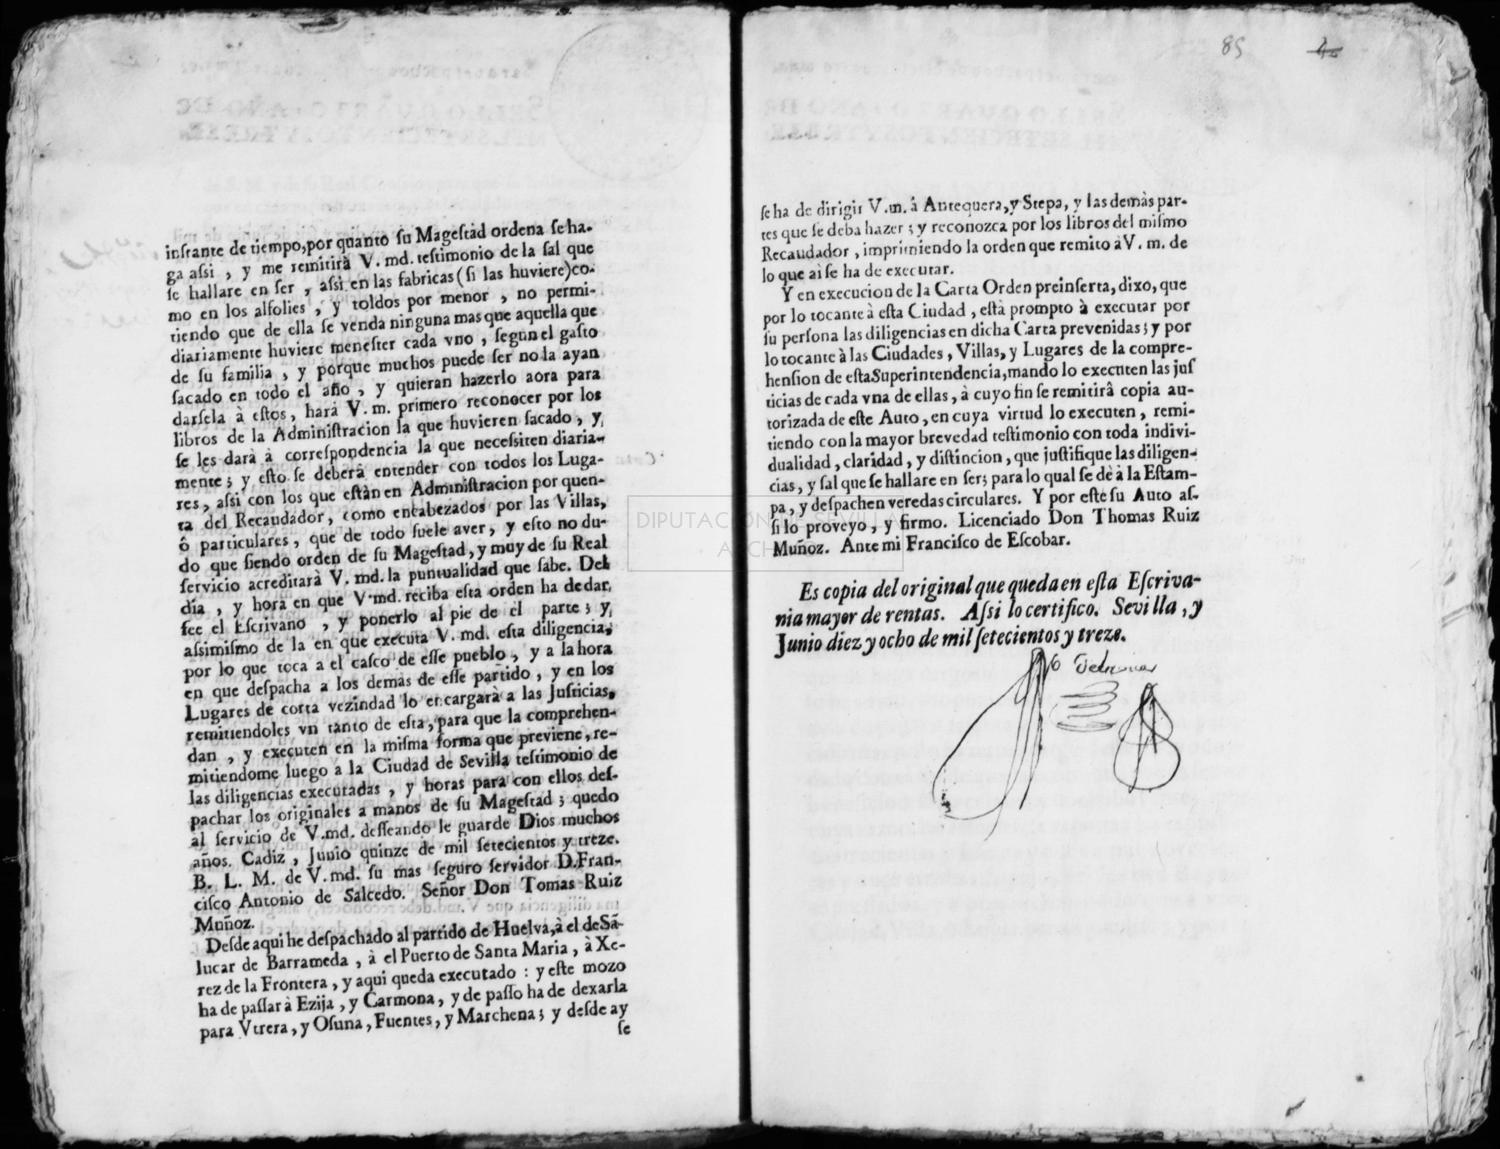 instante de tiempo, por quanto su Magestad ordena se ha-
ga assi, y me remitirà V. md. testimonio de la sal que
se hallare en ser, assi en las fabricas (si las huviere) co-
mo en los alfolies, y toldos por menor, no permi-
tiendo que de ella se venda ninguna mas que aquella que
diariamente huviere menester cada vno, segun el gasto
de su familia, y porque muchos puede ser no la ayan
sacado en todo el año, y quieran hazerlo aora para
darsela à estos, harà V. m. primero reconocer por los
libros de la Administracion la que huvieren sacado, y
se les darà à correspondencia la que necessiten diaria-
mente; y esto se deberà entender con todos los Luga-
res, assi con los que estàn en Administracion por quen-
ta del Recaudador, como encabezados por las Villas,
ô particulares, que de todo suele aver, y esto no du-
do que siendo orden de su Magestad, y muy de su Real
servicio acreditarà V. md. la puntualidad que sabe. Del
dia, y hora en que V. md. reciba esta orden ha de dar
fee el Escrivano, y ponerlo al pie de el parte; y
assimismo de la en que executa V. md. esta diligencia,
por lo que toca a el casco de esse pueblo, y a la hora
en que despacha a los demas de esse partido, y en los
Lugares de corta vezindad lo encargarà a las Justicias,
remitiendoles vn tanto de esta, para que la comprehen-
dan, y executen en la misma forma que previene, re-
mitiendome luego a la Ciudad de Sevilla testimonio de
las diligencias executadas, y horas para con ellos des-
pachar los originales a manos de su Magestad; quedo
al servicio de V.md. desseando le guarde Dios muchos
años. Cadiz, Junio quinze de mil setecientos y treze.
B. L. M. de V. md. su mas seguro servidor D. Fran-
cisco Antonio de Salcedo. Señor Don Tomas Ruiz
Muñoz.
Desde aqui he despachado al partido de Huelva, à el de Sã-
lucar de Barrameda, à el Puerto de Santa Maria, à Xe-
rez de la Frontera, y aqui queda executado: y este mozo
ha de passar à Ezija, y Carmona, y de passo ha de dexarla
para Vtrera, y Osuna, Fuentes, y Marchena; y desde ay
se
85
se ha de dirigir V.m. â Antequera, y Stepa, y las demàs par-
tes que se deba hazer; y reconozca por los libros del mismo
Recaudador, imprimiendo la orden que remito à V. m. de
lo que ai se ha de executar.
Y en execucion de la Carta Orden preinserta, dixo, que
por lo tocante à esta Ciudad, està prompto à executar por
su persona las diligencias en dicha Carta prevenidas; y por
lo tocante à las Ciudades, Villas, y Lugares de la compre-
hension de esta Superintendencia, mando lo executen las jus
ticias de cada vna de ellas, à cuyo fin se remitirâ copia au-
torizada de este Auto, en cuya virtud lo executen, remi-
tiendo con la mayor brevedad testimonio con toda indivi-
dualidad, claridad, y distincion, que justifique las diligen-
cias, y sal que se hallare en ser; para lo qual se dè à la Estam-
pa, y despachen veredas circulares. Y por este su Auto as-
si lo proveyo, y firmo. Licenciado Don Thomas Ruiz
Muñoz. Ante mi Francisco de Escobar.
Es copia del original que queda en esta Escriva-
nia mayor de rentas. Assi lo certifico. Sevilla, y
Junio diez y ocho de mil setecientos y treze.
DIPUTACIÓN DE SEVILLA
ARCHIVO